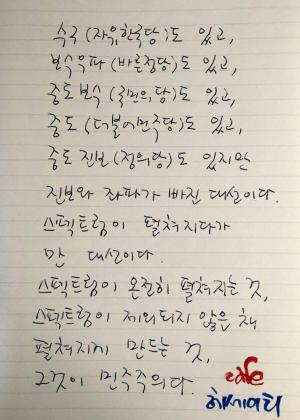 수구 (자유한국당)도 있고,
보수우파 (바른정당)도 있고,
중도 보수 (국민의당)도 있고,
중도 (더불어민주당)도 있고,
중도 진보 (정의당)도 있지만
진보와 좌파가 빠진 대선이다.
스펙트럼이 펼쳐지다가
만 대선이다.
스펙트럼이 온전히 펼쳐지는 것,
스펙트럼이 제외되지 않은 채
펼쳐지게 만드는 것,
그것이 민주주의다.
cafe